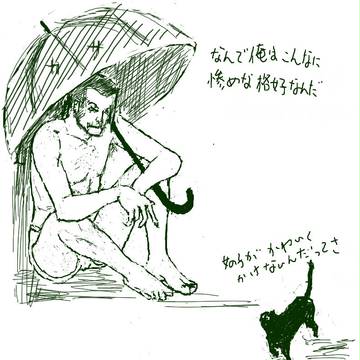 カサ
なんで俺はこんなに
惨めな格好なんだ
かわいく
かけないんだってさ